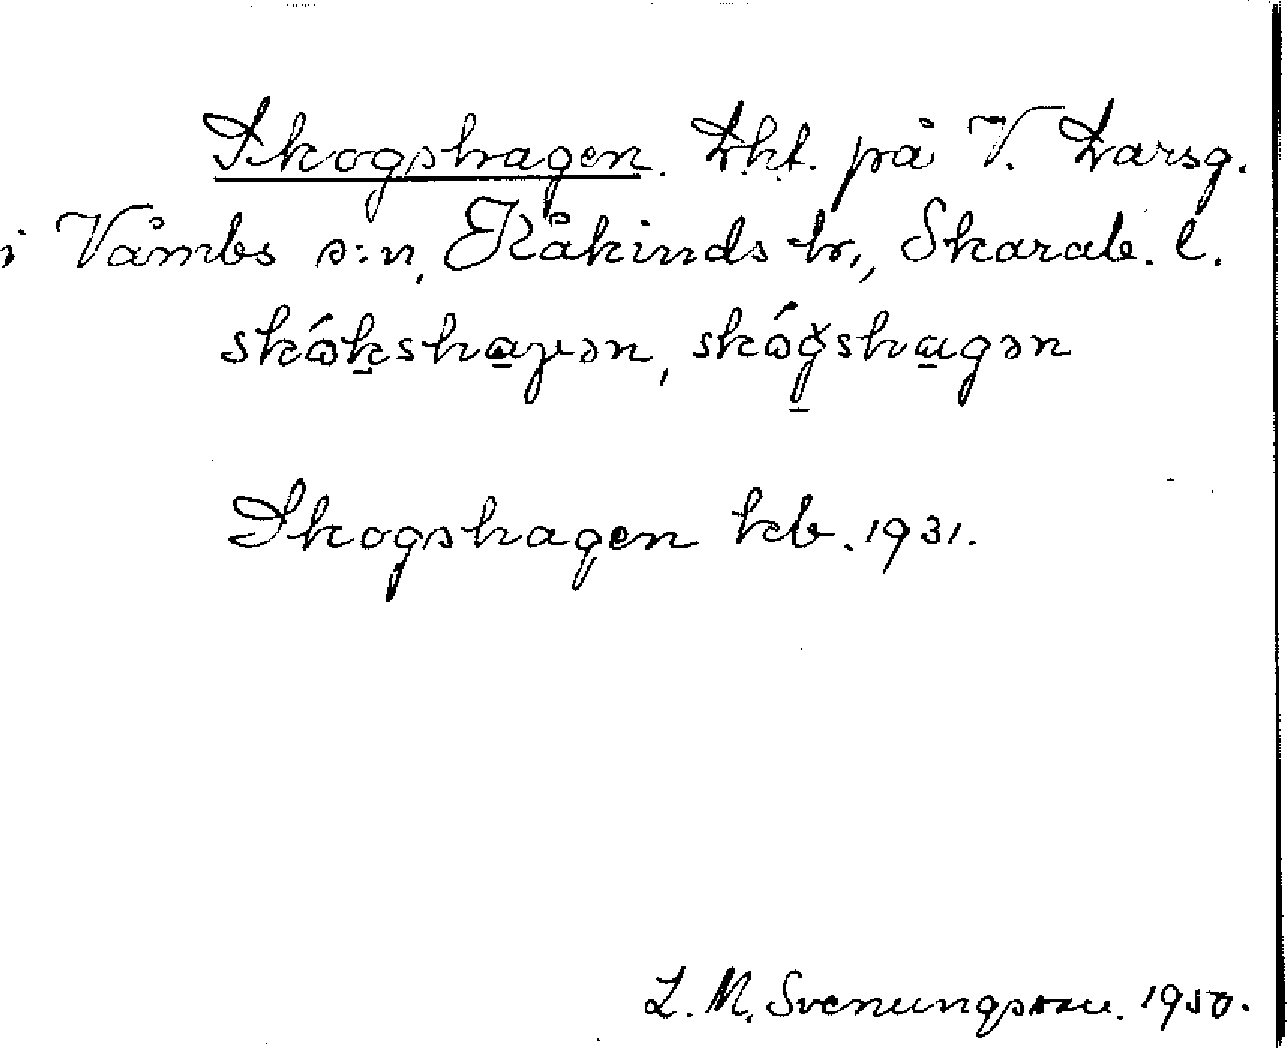 Skogshagen. Lht. på V. Larsg.
i Våmbs s:n, Kåkinds hr., Skarab. l.
skókshaγən, skógshagən
Skogshagen kb. 1931.
L. M. Svenungsson. 1950.